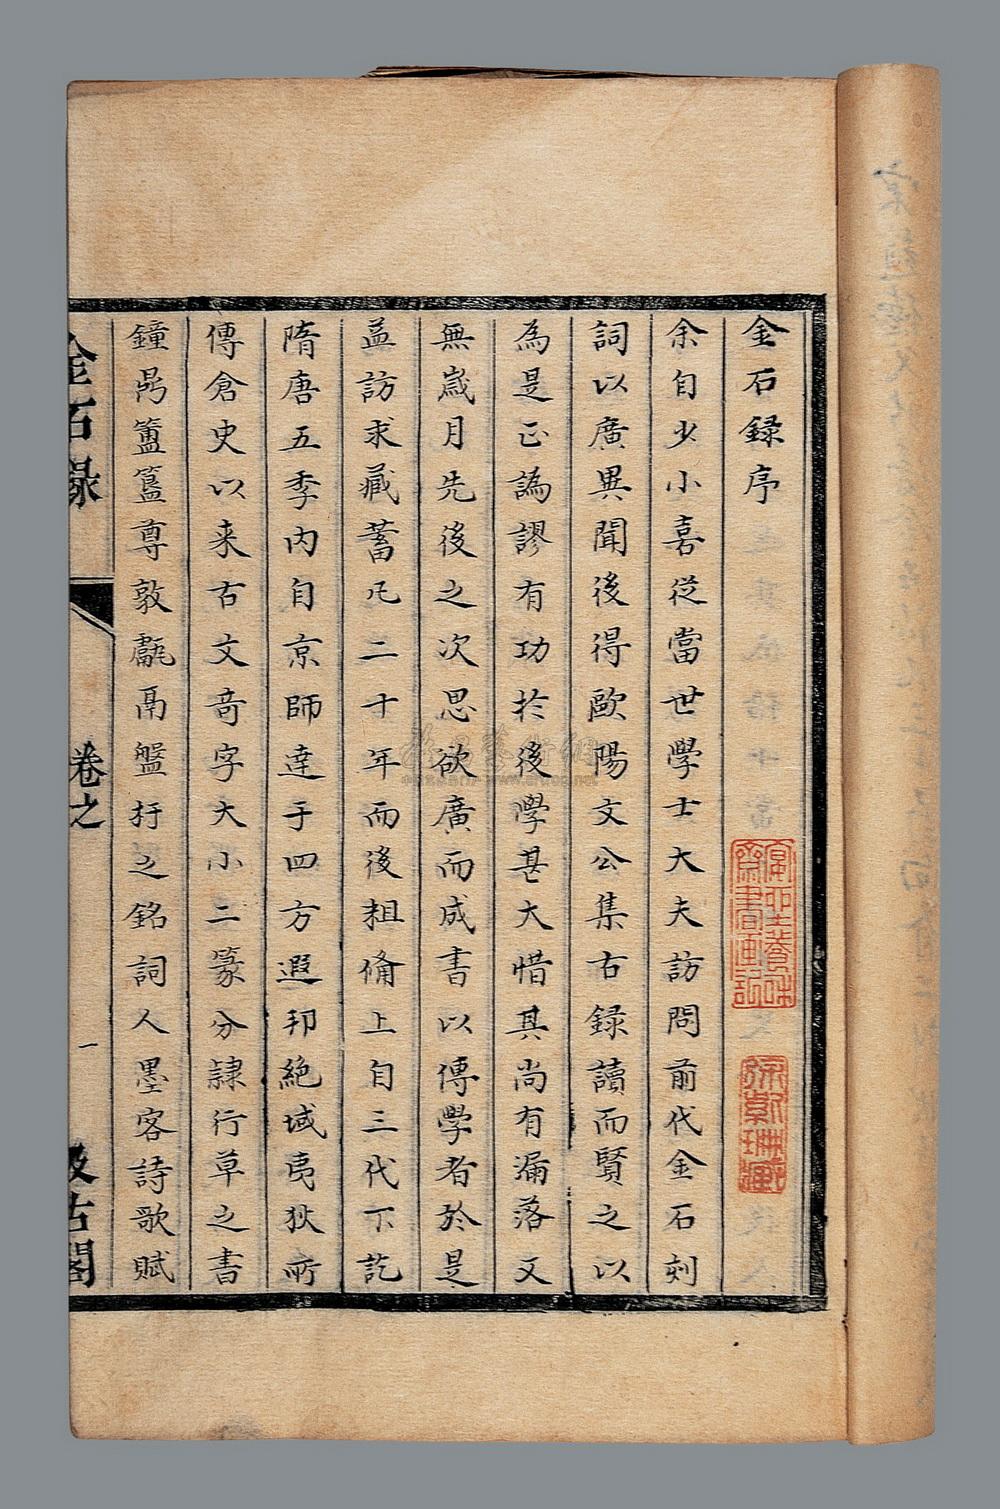 金石録序
余自少小喜從當世學士大夫訪問前代金石刻
詞以廣異聞後得歐陽文公集古録讀而賢之以
為是正譌謬有功於後學甚大惜其尚有漏落又
無嵗月先後之次思欲廣而成書以傳學者於是
益訪求藏蓄凡二十年而後粗備上自三代下訖
隋唐五季内自京師達于四方遐邦絶域夷狄所
傳倉史以来古文竒字大小二篆分隷行草之書
鐘鼎簠簋尊敦甗鬲盤杅之銘詞人墨客詩歌賦
金石録
卷之
一
汲古閣